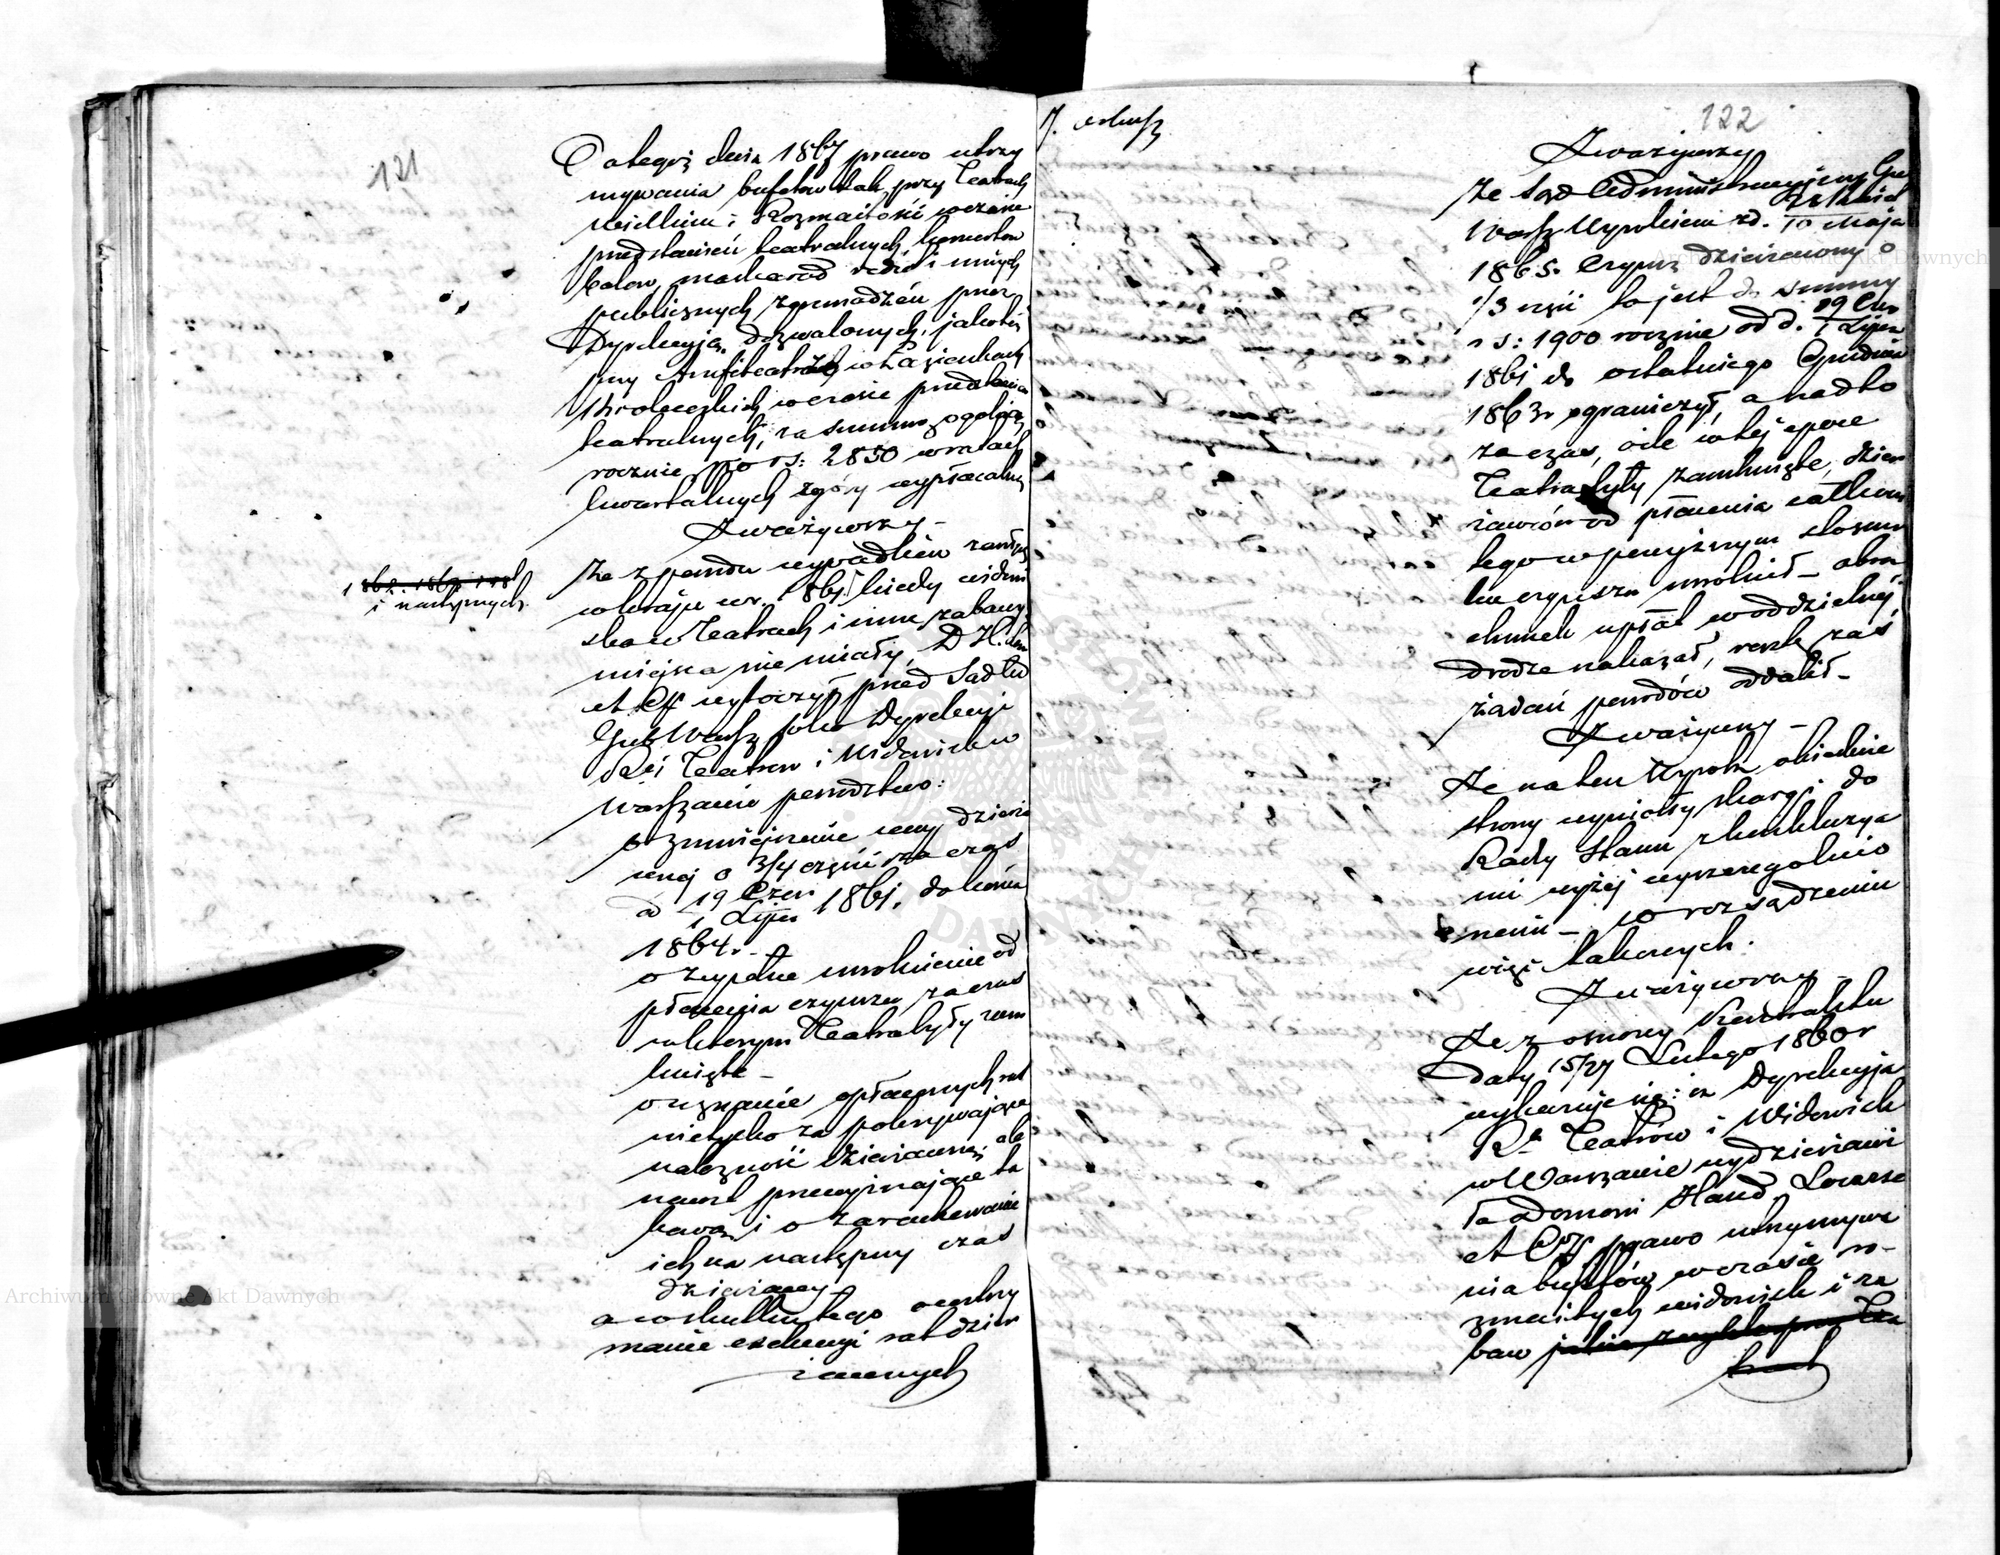 121
Categoż dnia 1867 prawo utrzy
mywania bufetów tak przy Teatrach
Wielkim i Rozmaitości w czasie
przedstawień teatralnych, koncertów
balów, maskarad i innych
publicznych zgromadzeń przez
Dyrekcyją dozwalanych, jakoteż
przy Amfiteatrze w Łazienkach
Królewskich w czasie przedstawień
teatralnych, za summę ogólną
rocznie po rs: 2850 w ratach
kwartalnych z góry wypłacalną
Zważywszy –
że z powodu wypadków zaszłych
w kraju w r. 1861 kiedy widowi
ska w Teatrach i inne zabawy
miejsca nie miały, D. H.
et C wytoczył przed Sąd
Gub Warsz. Dyrekcyi
Teatrów i Widowisk w
Warszawie powództwo:
o zmniejszenie ceny dzierża
wnej o 3/4 części za czas
od 19 Czer / 1 Lipca 1861. do końca
1864 r. –
o zupełne uwolnienie od
płacenia czynszu za czas
w którym Teatra były zam
knięte –
o uznanie opłaconych rat
nietylko za pokrywające
należność dzierżawną, ale
nawet przewyższające ta
kową i o zarachowanie
ich na następny czas
dzierżawy
a w skutku tego o wstrzy
manie exekucyi rat dzier
żawnych
1862. 1863 i 1864
i następnych.
122
Zważywszy
że Sąd Administracyjny Gu
Warsz Wyrokiem z d. Maja
1865. Czynsz dzierżawny o
1/3 część to jest do summy
rs: 1900 rocznie od d. 19 Czer / 1 Lipca
1861 do ostatniego Grudnia
1863 r ograniczył, a nadto
za czas, o ile w tej epoce
Teatra były zamknięte, dzier
żawców od płacenia całkowi
tego w powyższym stosun
ku czynszu uwolnił – obra
chunek opłat w oddzielnej
drodze nakazał, resztę zaś
żądań powodów oddalił –
Zważywszy –
że na ten Wyrok obiedwie
strony wyniosły skargi do
Rady Stanu z konkluzya
mi wyżej wyszczególnio
nemi – w rozsądzeniu
więc takowych.
Zważywszy –
że z osnowy Kontraktu
daty 15/27 Lutego 1860 r
wykazuje się: iż Dyrekcyja
Teatrów i Widowisk
w Warszawie wydzierżawi
ła Domowi Hand.
et prawo utrzymywa
nia bufetów w czasie ro-
zmaitych widowisk i za
baw